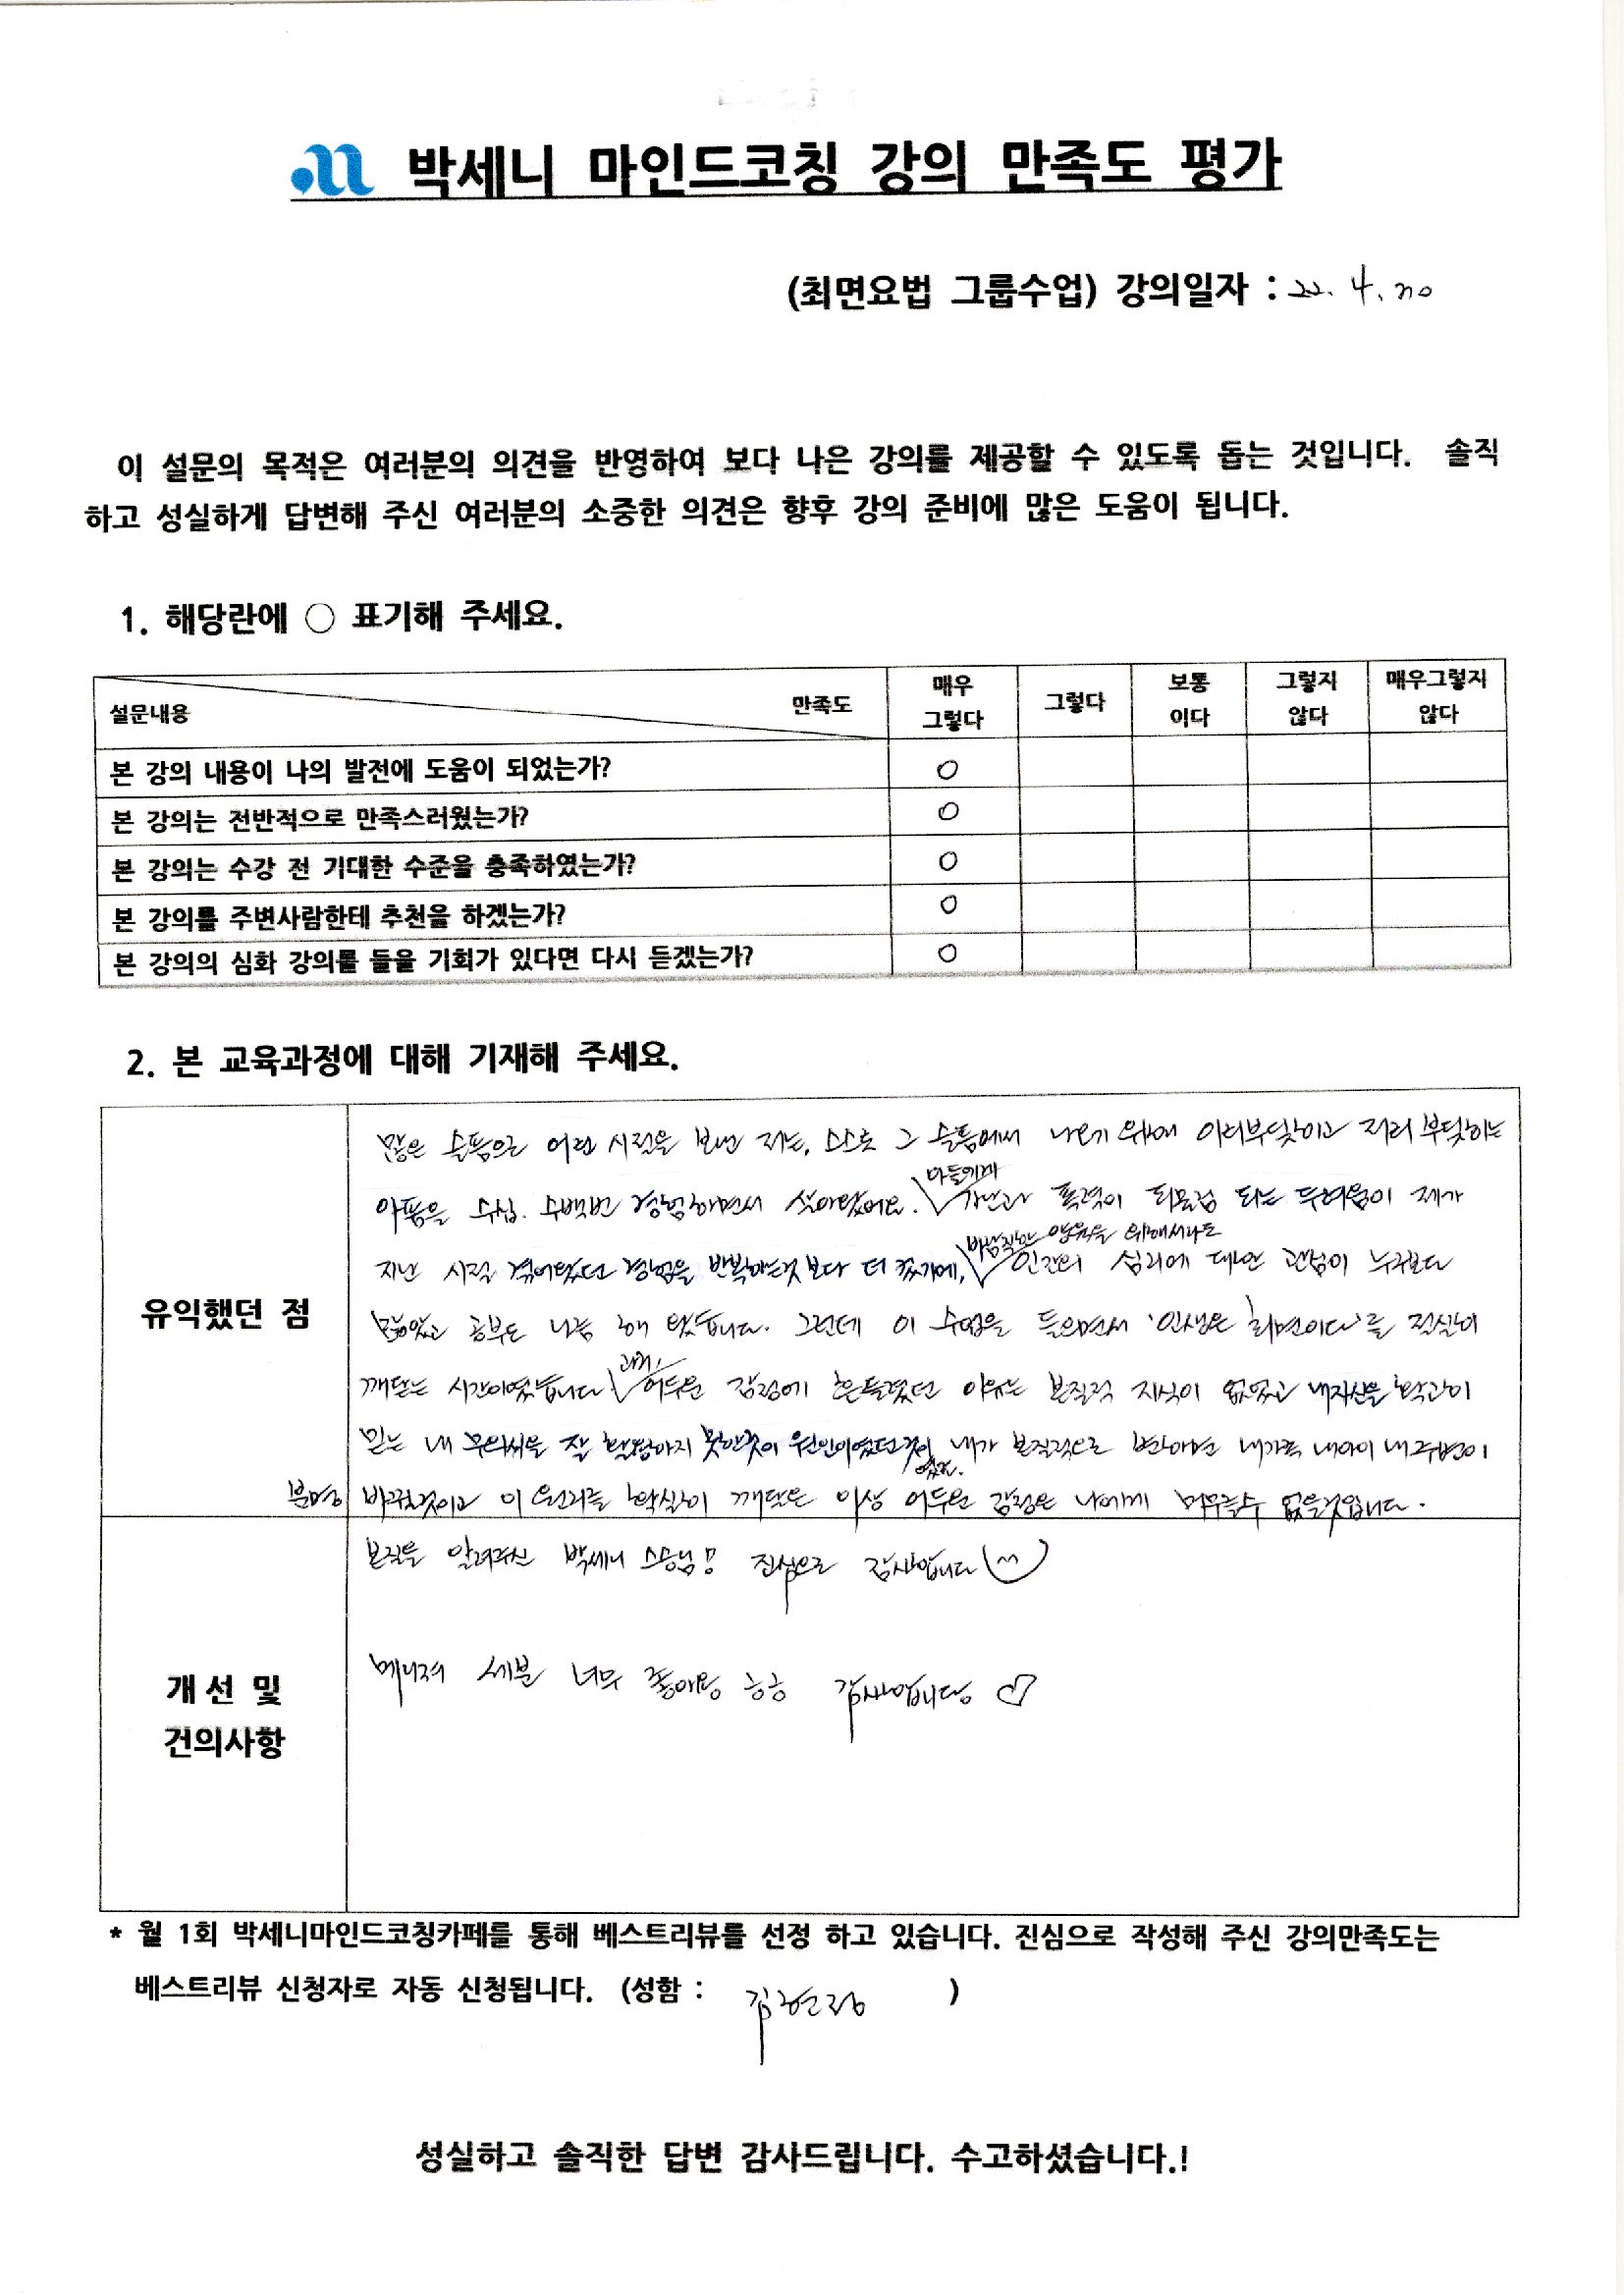 박세니 마인드코칭 강의 만족도 평가
(최면요법 그룹수업) 강의일자 : 22. 4. 20
이 설문의 목적은 여러분의 의견을 반영하여 보다 나은 강의를 제공할 수 있도록 돕는 것입니다. 솔직
하고 성실하게 답변해 주신 여러분의 소중한 의견은 향후 강의 준비에 많은 도움이 됩니다.
1. 해당란에 ○ 표기해 주세요.
설문내용 만족도 매우 그렇다 그렇다 보통 이다 그렇지 않다 매우그렇지 않다
본 강의 내용이 나의 발전에 도움이 되었는가? ○
본 강의는 전반적으로 만족스러웠는가? ○
본 강의는 수강 전 기대한 수준을 충족하였는가? ○
본 강의를 주변사람한테 추천을 하겠는가? ○
본 강의의 심화 강의를 들을 기회가 있다면 다시 듣겠는가? ○
2. 본 교육과정에 대해 기재해 주세요.
유익했던 점
많은 슬픔으로 어린 시절을 보낸 저는, 스스로 그 슬픔에서 나오기 위해 이리부딪히고 저리 부딪히는
아픔을 수십. 수백번 경험하면서 살아왔어요. 아들에게 가난과 폭력이 되물림 되는 두려움이 제가
지난 시절 겪어왔던 경험을 반복하는것 보다 더 컸기에, 바람직한 양육을 위해서라도 인간의 심리에 대한 관심이 누구보다
많았고 공부도 나름 해 왔습니다. 그런데 이 수업을 들으면서 '인생은 최면이다'를 절실히
깨닫는 시간이였습니다 과거, 어두운 감정에 흔들렸던 이유는 본질적 지식이 없었고 내자신을 확고히
믿는 내 무의식을 잘 확장하지 못한것이 원인이였던것이 었죠. 내가 본질적으로 변하면 내가족 내아이 내주변이
분명 바뀔것이고 이 원리를 확실히 깨달은 이상 어두운 감정은 나에게 머무를수 없을것입니다.
본질을 알려주신 박세니 스승님!! 진심으로 감사합니다
개선 및
건의사항
메니져 세분 너무 좋아용 ㅎㅎ 감사합니당 ♡
* 월 1회 박세니마인드코칭카페를 통해 베스트리뷰를 선정 하고 있습니다. 진심으로 작성해 주신 강의만족도는
베스트리뷰 신청자로 자동 신청됩니다. (성함 : 김현정 )
성실하고 솔직한 답변 감사드립니다. 수고하셨습니다.!